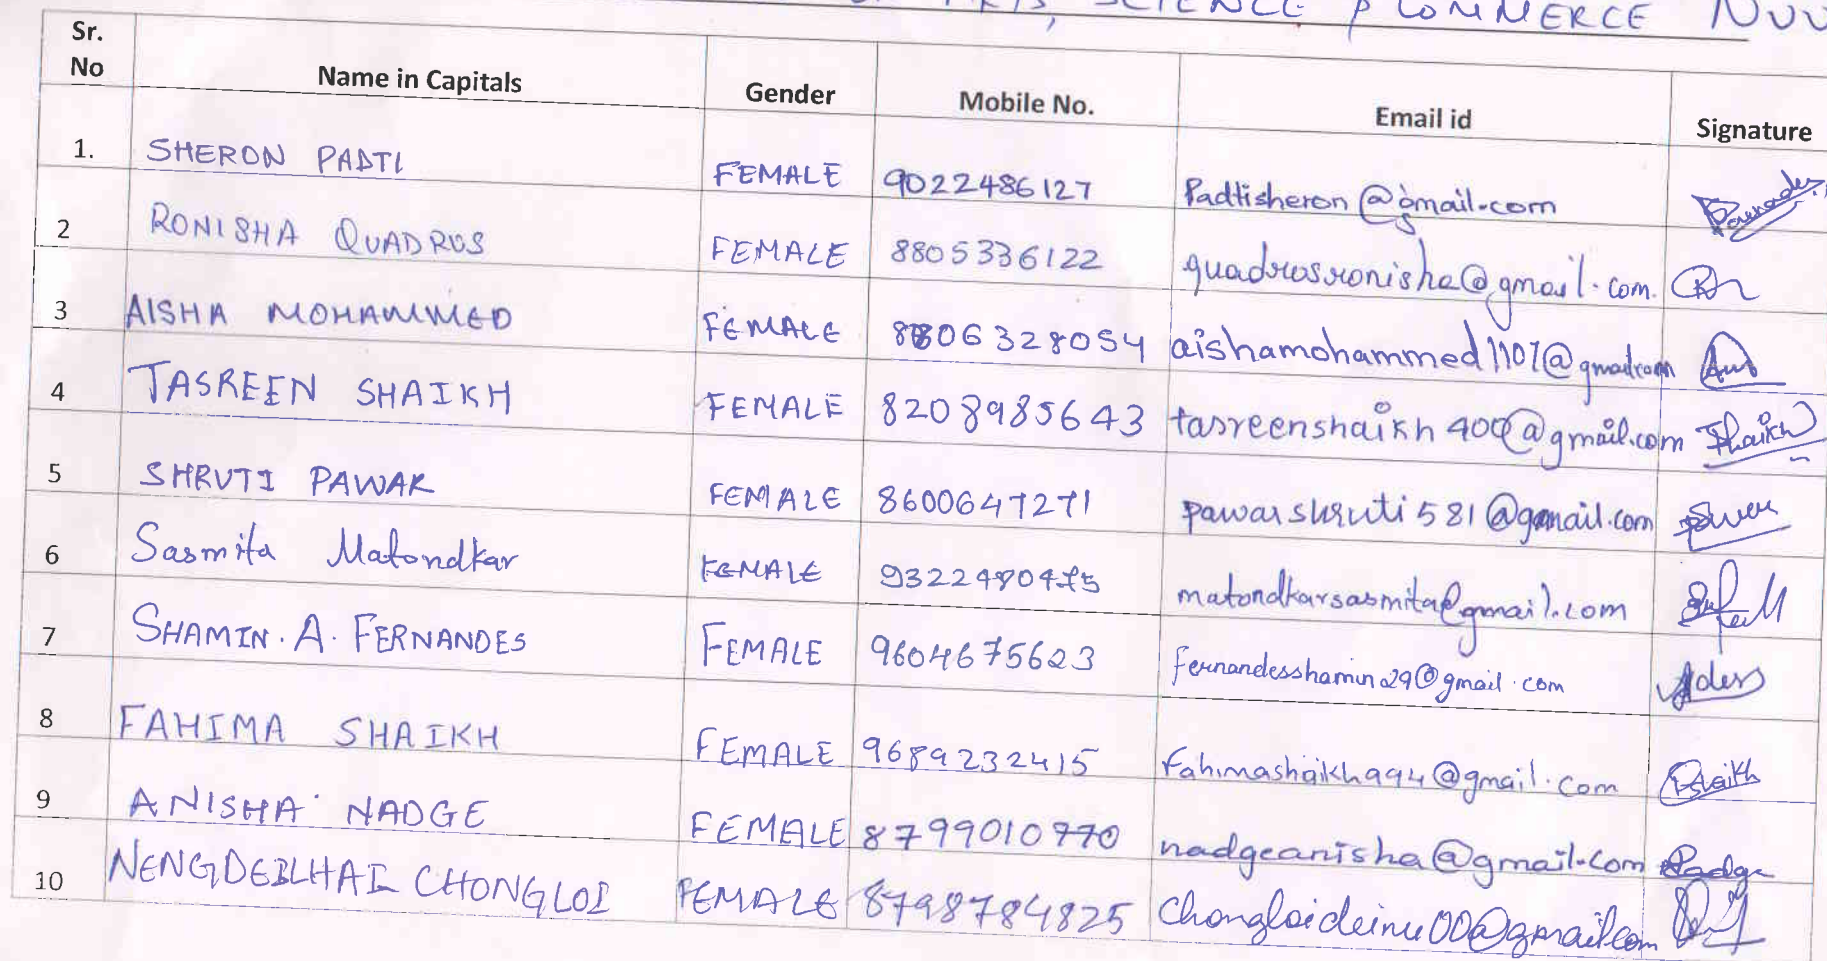 SCIENCE & COMMERCE
Sr. No Name in Capitals Gender Mobile No. Email id Signature
1. SHERON PADTI FEMALE 9022486127 Padtisheron@gmail.com
2 RONISHA QUADROS FEMALE 8805336122 quadrosronisha@gmail.com.
3 AISHA MOHAMMED FEMALE 8806328054 aishamohammed1107@gmail.com
4 TASREEN SHAIKH FEMALE 8208985643 tasreenshaikh400@gmail.com Shaikh
5 SHRUTI PAWAR FEMALE 8600647271 pawarshruti581@gmail.com
6 Sasmita Matondkar FEMALE 9322480475 matondkarsasmita@gmail.com
7 SHAMIN. A. FERNANDES FEMALE 9604675623 fernandesshamin29@gmail.com
8 FAHIMA SHAIKH FEMALE 9689232415 Fahimashaikh994@gmail.com
9 ANISHA NADGE FEMALE 8799010770 nadgeanisha@gmail.com
10 NENGDEILHAI CHONGLOI FEMALE 8798784825 Chongloideinu00@gmail.com